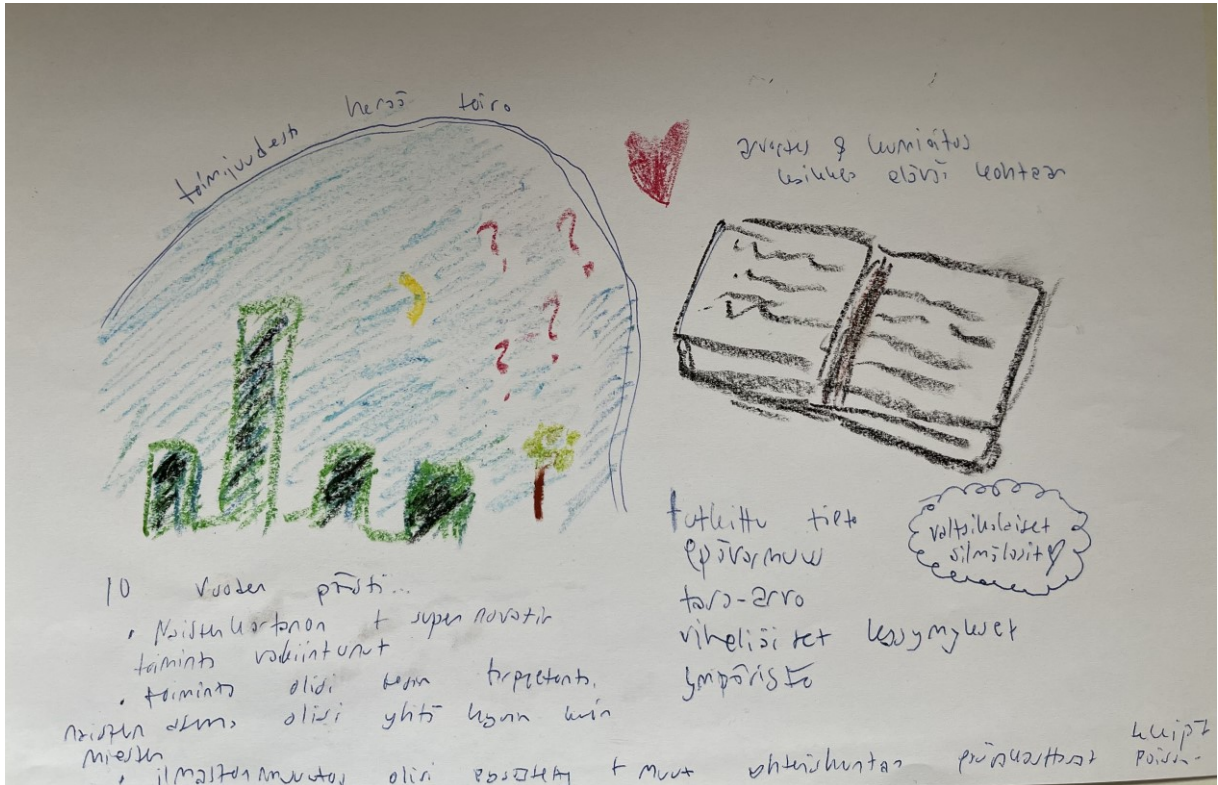 toimijuudesta herää toivo
arvostus & kunnioitus
kaikkea elävää kohtaan
tutkittu tieto
epävarmuus
tasa-arvo
viheliäiset kysymykset
ympäristö
valtsikalaiset
silmälasit
10 vuoden päästä...
• Naistenkartanon + supernovatin
toiminta vakiintunut
• toiminta olisi tarpeetonta.
naisten asema olisi yhtä hyvin kuin
miesten
• ilmastonmuutos olisi + muut poissa.